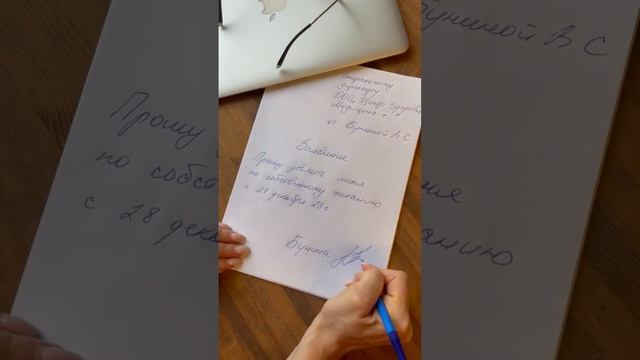 Генеральному
директору
ООО Центр Здоровья
Медицина +
от Буниной В.С
Заявление
Прошу уволить меня
по собственному желанию
с 28 декабря 23 г.
Бунина